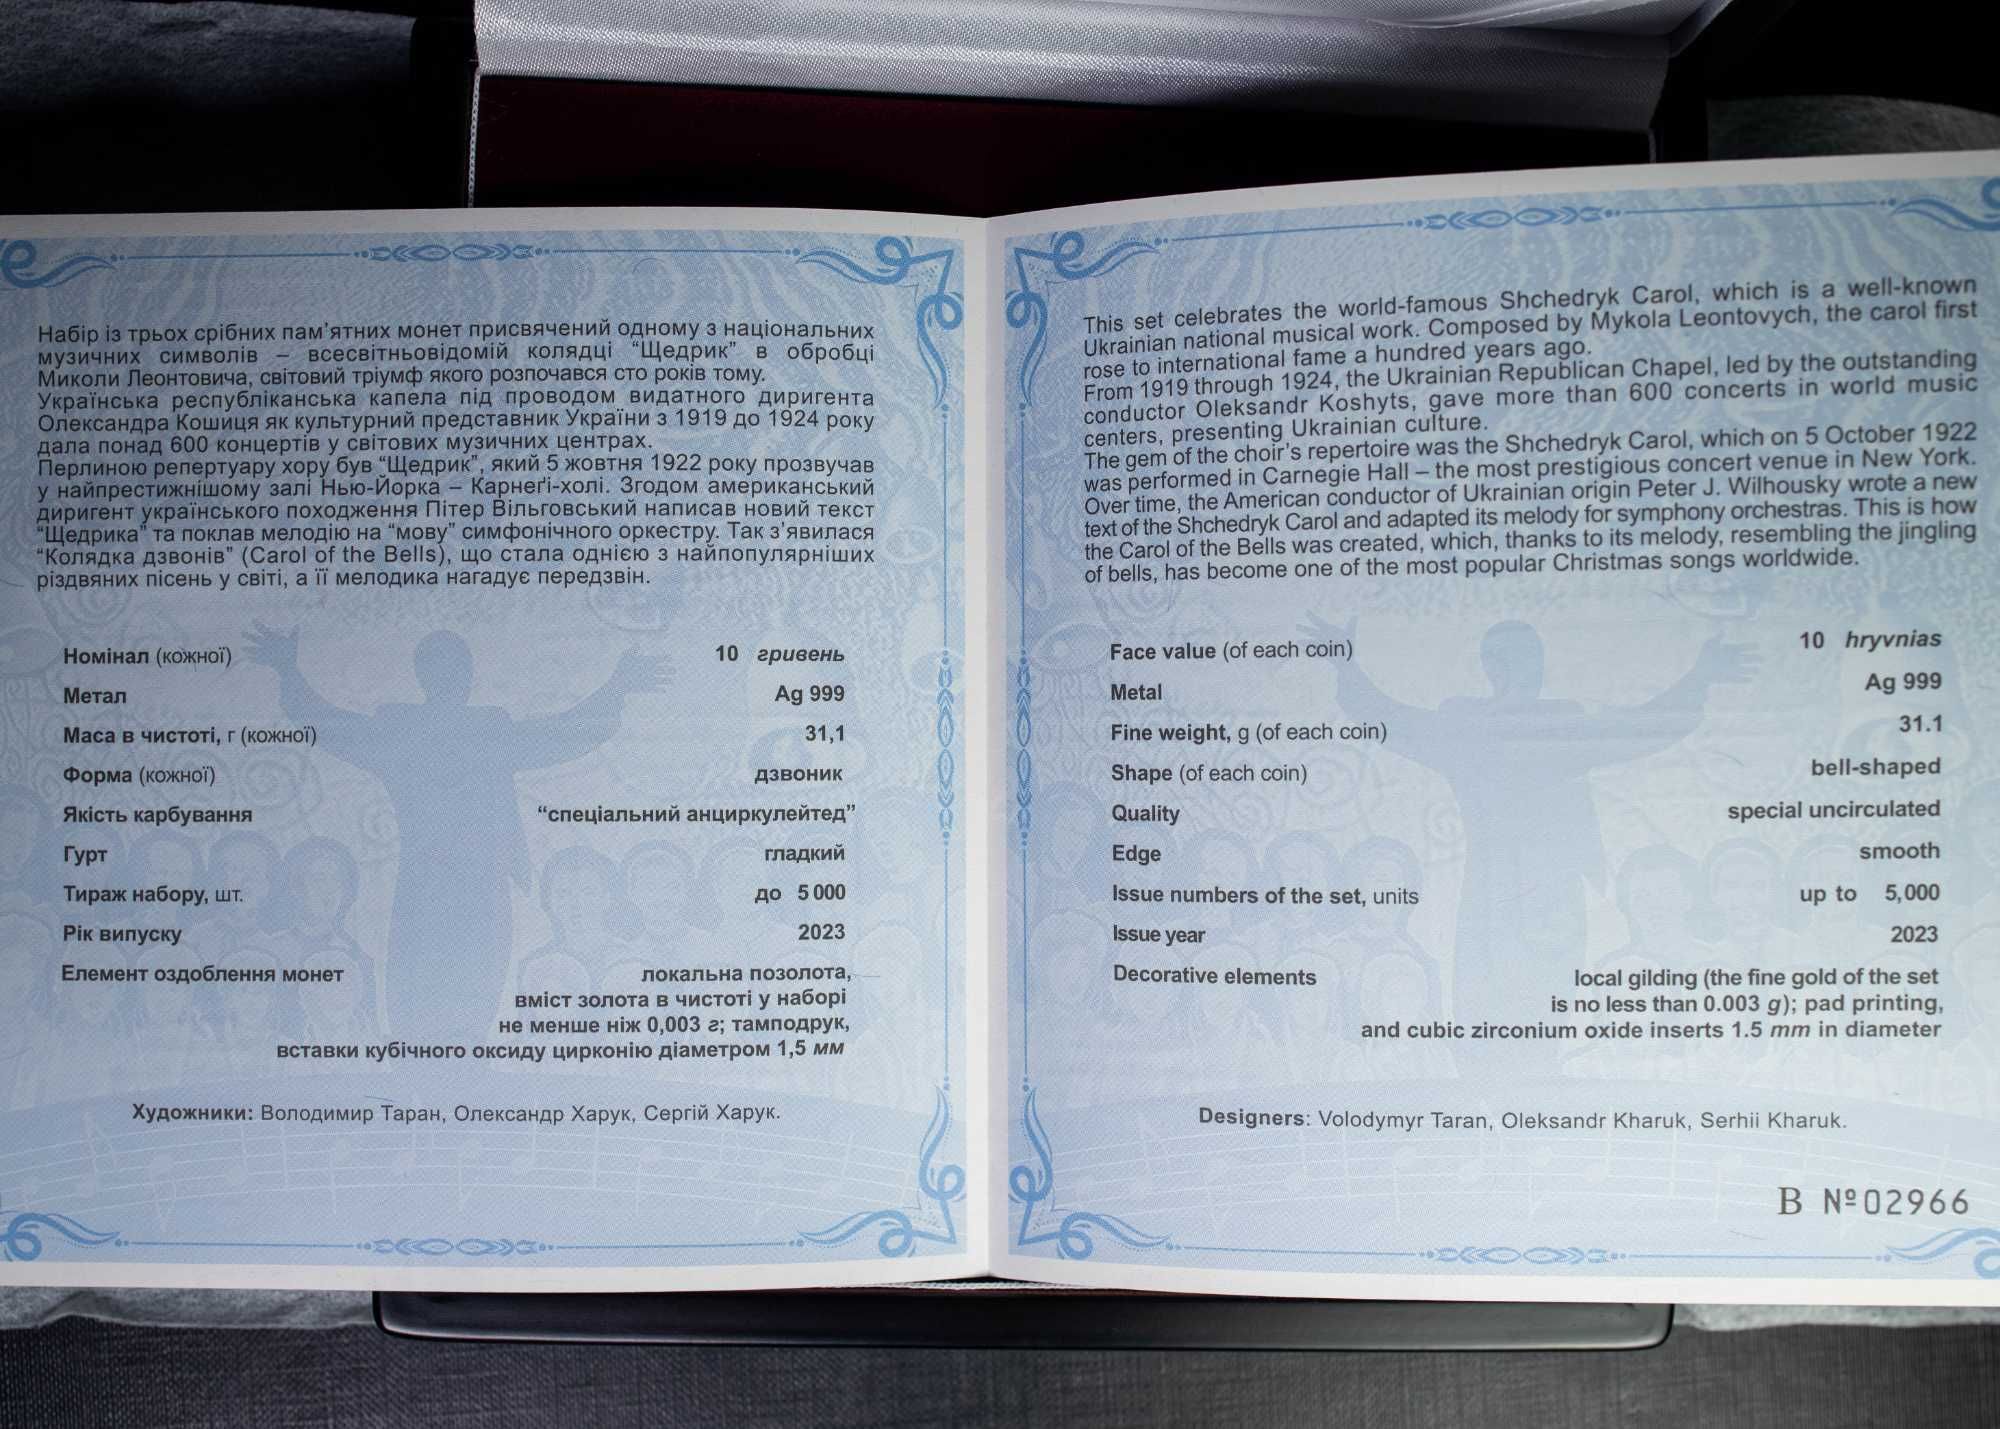 Набір із трьох срібних пам’ятних монет присвячений одному з національних
музичних символів – всесвітньовідомій колядці “Щедрик” в обробці
Миколи Леонтовича, світовий тріумф якого розпочався сто років тому.
Українська республіканська капела під проводом видатного диригента
Олександра Кошиця як культурний представник України з 1919 до 1924 року
дала понад 600 концертів у світових музичних центрах.
Перлиною репертуару хору був “Щедрик”, який 5 жовтня 1922 року прозвучав
у найпрестижнішому залі Нью-Йорка – Карнеґі-холі. Згодом американський
диригент українського походження Пітер Вільговський написав новий текст
“Щедрика” та поклав мелодію на “мову” симфонічного оркестру. Так з’явилася
“Колядка дзвонів” (Carol of the Bells), що стала однією з найпопулярніших
різдвяних пісень у світі, а її мелодика нагадує передзвін.
Номінал (кожної) 10 гривень
Метал Ag 999
Маса в чистоті, г (кожної) 31,1
Форма (кожної) дзвоник
Якість карбування “спеціальний анциркулейтед”
Гурт гладкий
Тираж набору, шт. до 5 000
Рік випуску 2023
Елемент оздоблення монет локальна позолота,
вміст золота в чистоті у наборі
не менше ніж 0,003 г; тамподрук,
вставки кубічного оксиду цирконію діаметром 1,5 мм
Художники: Володимир Таран, Олександр Харук, Сергій Харук.
This set celebrates the world-famous Shchedryk Carol, which is a well-known
Ukrainian national musical work. Composed by Mykola Leontovych, the carol first
rose to international fame a hundred years ago.
From 1919 through 1924, the Ukrainian Republican Chapel, led by the outstanding
conductor Oleksandr Koshyts, gave more than 600 concerts in world music
centers, presenting Ukrainian culture.
The gem of the choir’s repertoire was the Shchedryk Carol, which on 5 October 1922
was performed in Carnegie Hall – the most prestigious concert venue in New York.
Over time, the American conductor of Ukrainian origin Peter J. Wilhousky wrote a new
text of the Shchedryk Carol and adapted its melody for symphony orchestras. This is how
the Carol of the Bells was created, which, thanks to its melody, resembling the jingling
of bells, has become one of the most popular Christmas songs worldwide.
Face value (of each coin) 10 hryvnias
Metal Ag 999
Fine weight, g (of each coin) 31.1
Shape (of each coin) bell-shaped
Quality special uncirculated
Edge smooth
Issue numbers of the set, units up to 5,000
Issue year 2023
Decorative elements local gilding (the fine gold of the set
is no less than 0.003 g); pad printing,
and cubic zirconium oxide inserts 1.5 mm in diameter
Designers: Volodymyr Taran, Oleksandr Kharuk, Serhii Kharuk.
В №02966